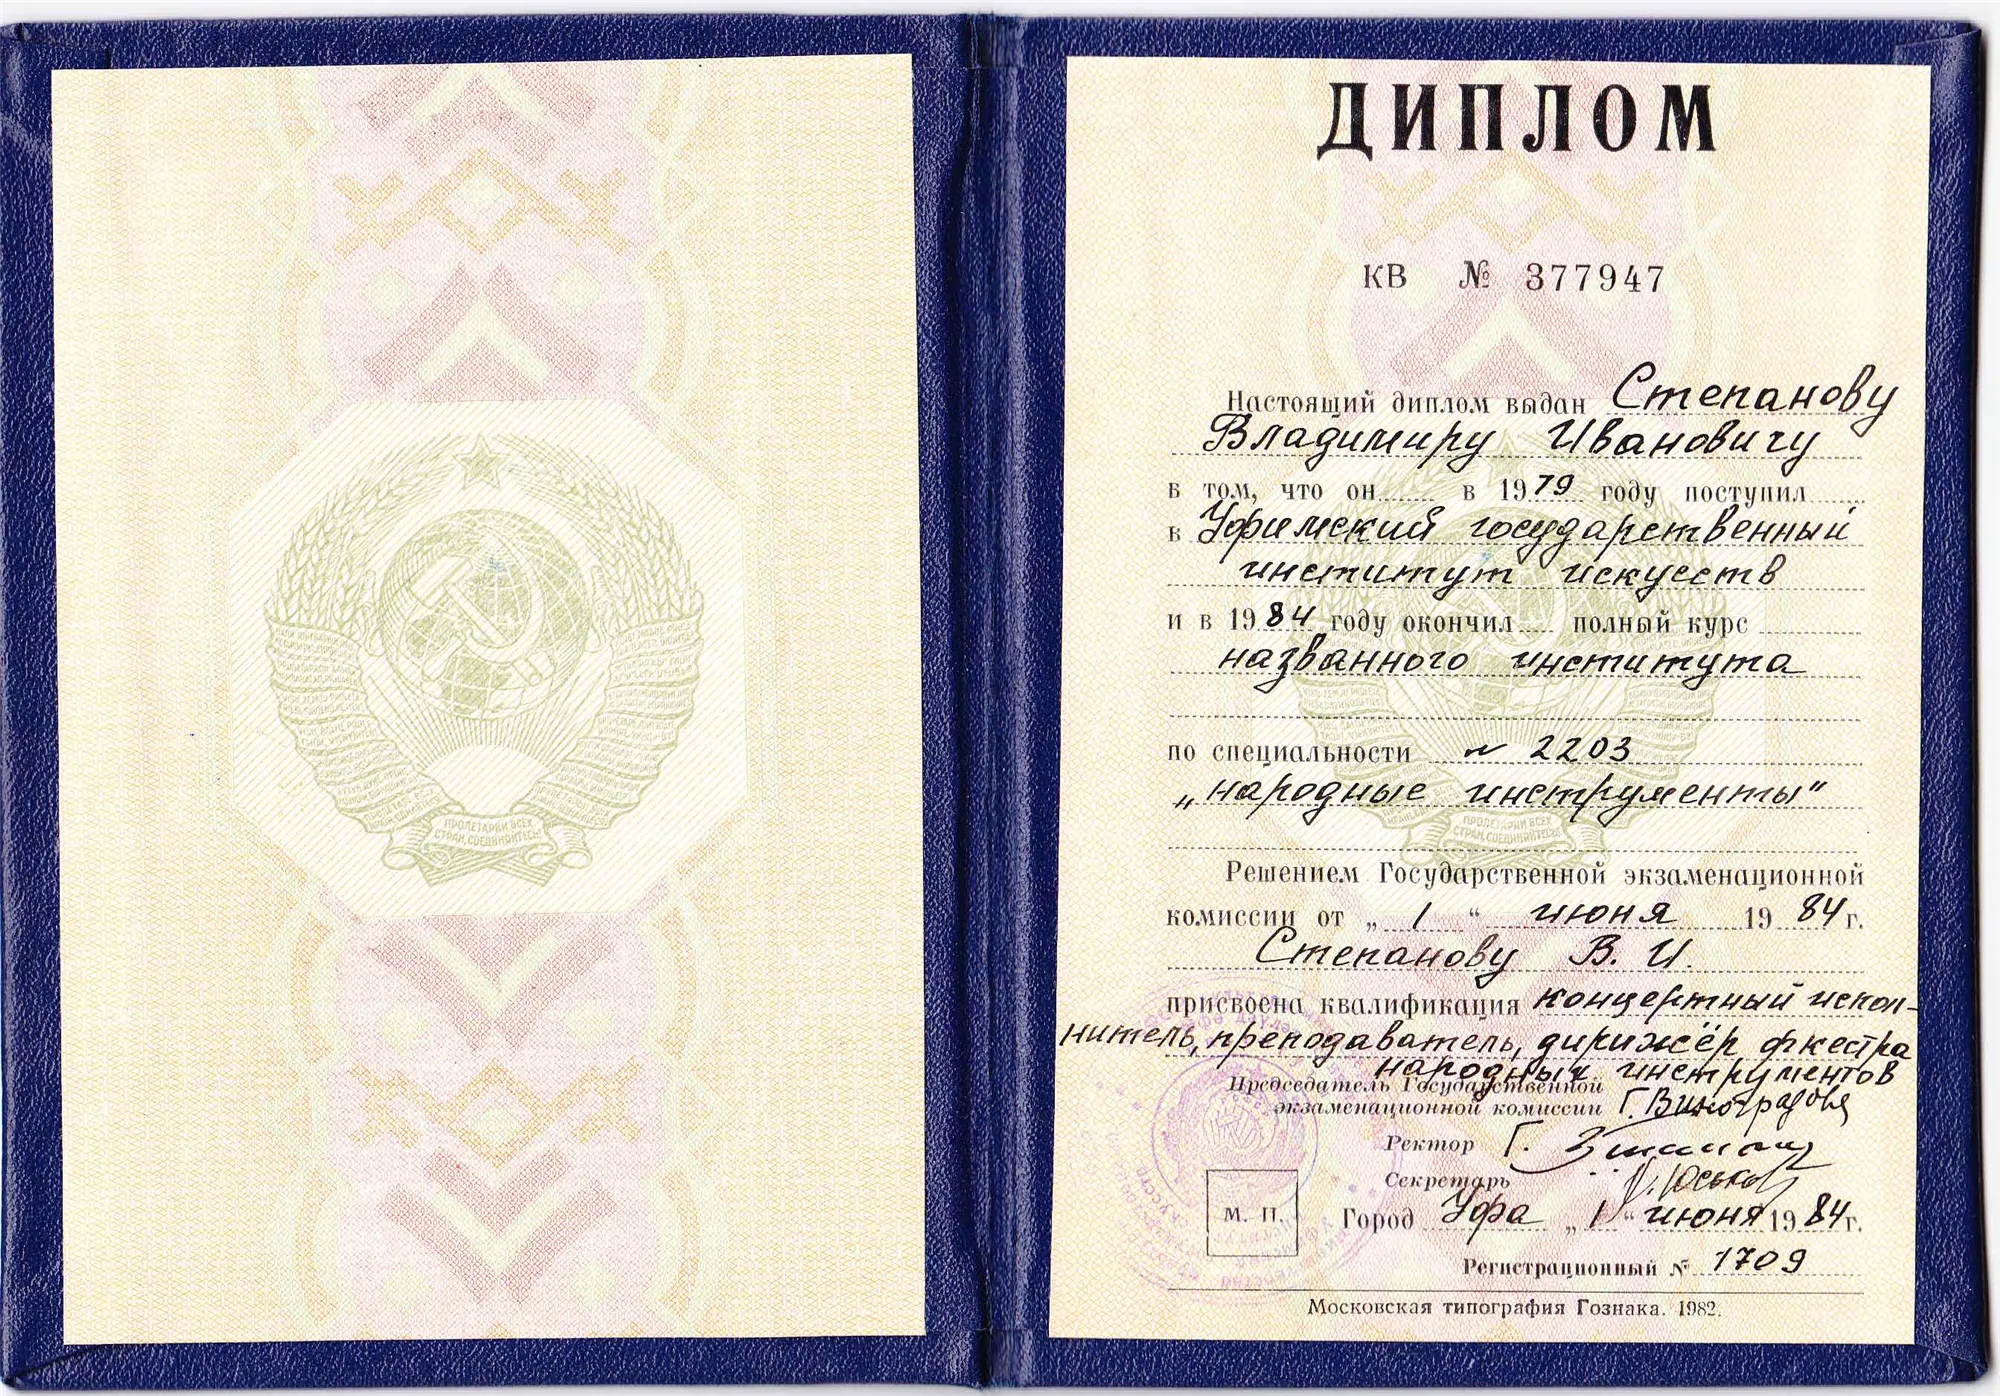 ПРОЛЕТАРИИ ВСЕХ
СТРАН, СОЕДИНЯЙТЕСЬ!
ДИПЛОМ
КВ № 377947
Настоящий диплом выдан Степанову
Владимиру Ивановичу
в том, что он в 1979 году поступил
в Уфимский государственный
институт искусств
и в 1984 году окончил полный курс
названного института
по специальности № 2203
„народные инструменты"
Решением Государственной экзаменационной
комиссии от „ 1 “ июня 1984 г.
Степанову В. И.
присвоена квалификация концертный испол-
нитель, преподаватель, дирижёр оркестра
народных инструментов
Председатель Государственной
экзаменационной комиссии Г. Виноградова
Ректор
Секретарь
М. П. Город Уфа „ 1 “ июня 1984 г.
Регистрационный № 1709
Московская типография Гознака. 1982.